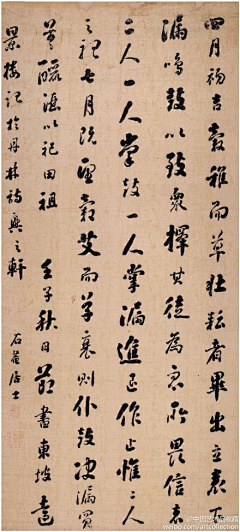 四月初吉穀稚而草壯耘者畢出立表下
漏鳴鼓以致衆擇其徒為衆所畏信者
二人一人掌鼓一人掌漏進退作止惟二人
之七月既望穀艾而草衰則仆鼓決漏買
羊以祀田祖 壬子秋日節書東坡遠
景樓記於丹林詩之軒
石菴居士
weibo.com/artcollection